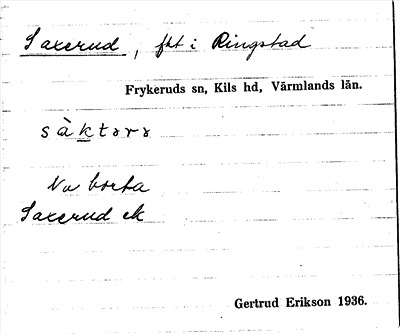 Saxerud, fht i Ringstad
Frykeruds sn, Kils hd, Värmlands län.
Nu borta
Saxerud ek
Gertrud Erikson 1936.